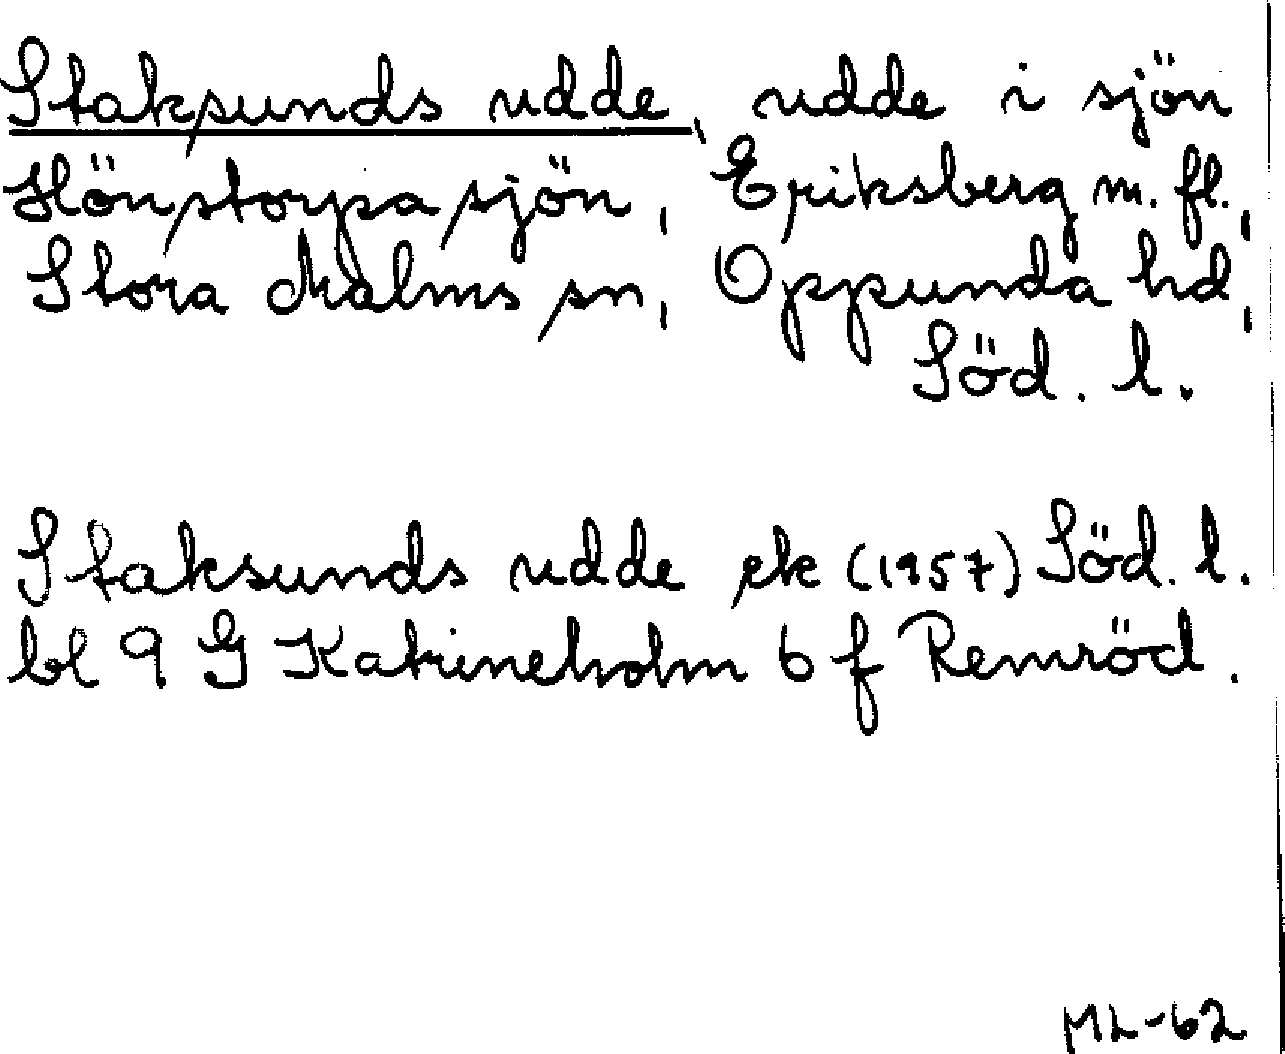 Staksunds udde, udde i sjön
Hönstorpasjön, Eriksberg m. fl.,
Stora Malms sn, Oppunda hd,
Söd. l.
Staksunds udde ek (1957) Söd. l.
bl 9 G Katrineholm 6 f Remröd.
ML-62